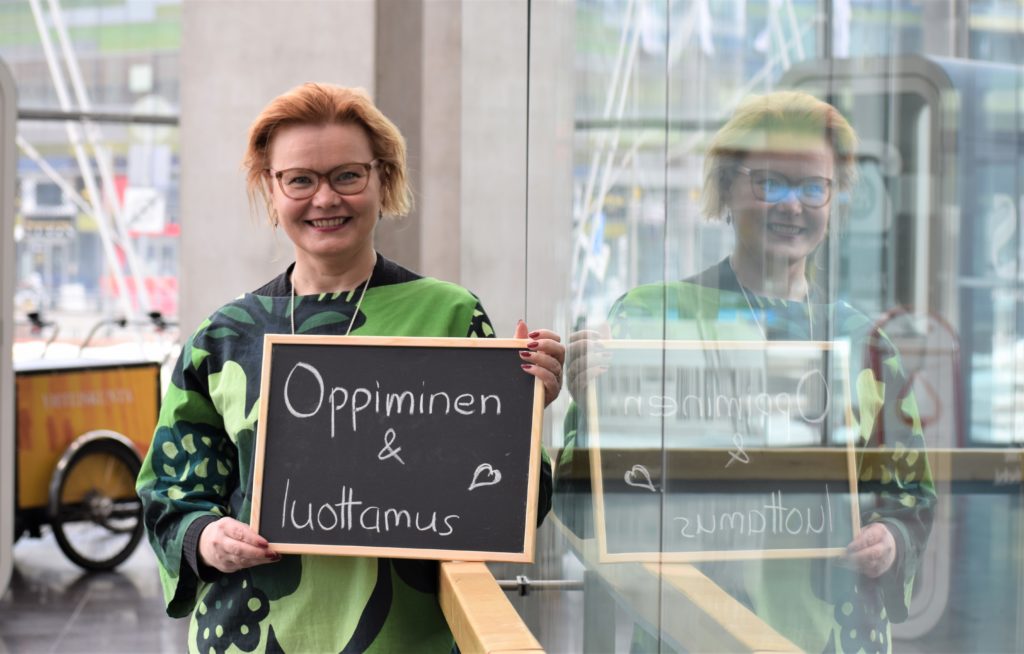 Oppiminen
&
luottamus